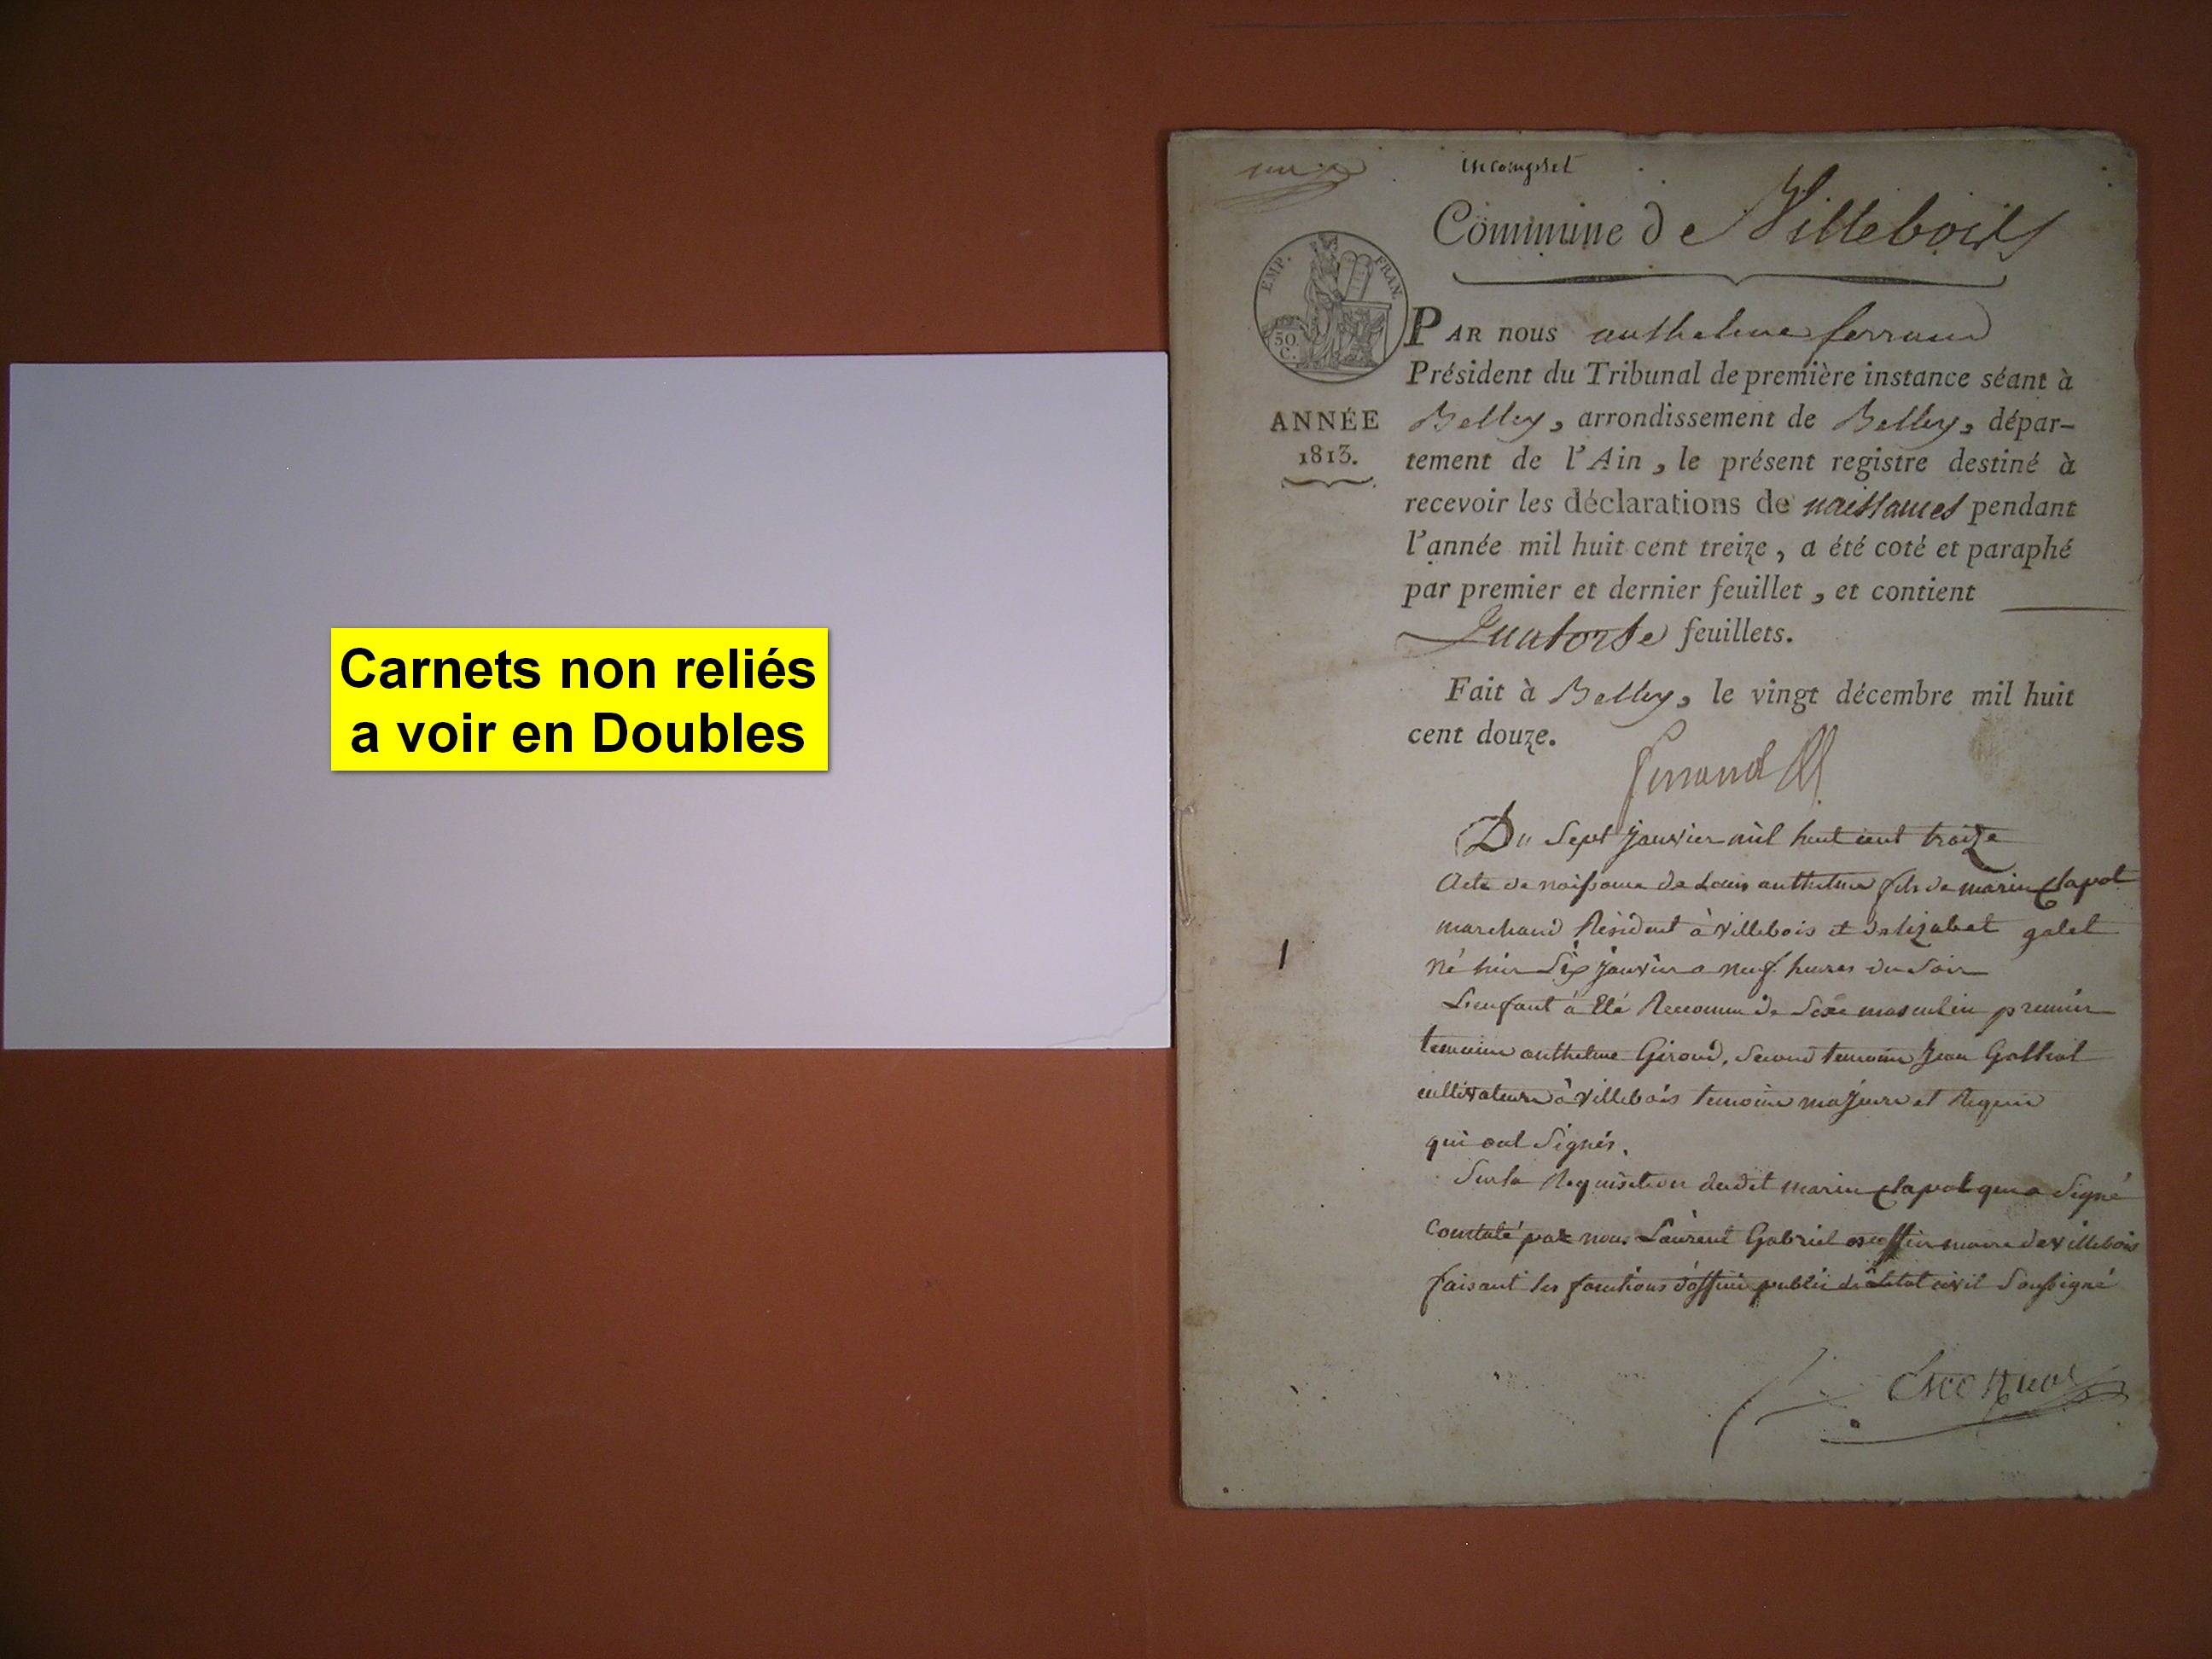 Carnets non reliés
a voir en Doubles
incomplet
Commune de Villebois
EMP. FRAN.
50
C.
PAR nous anthelme ferrand
Président du Tribunal de première instance séant à
ANNÉE
1813.
Belley, arrondissement de Belley, dépar-
tement de l'Ain, le présent registre destiné à
recevoir les déclarations de naissances pendant
l'année mil huit cent treize, a été coté et paraphé
par premier et dernier feuillet, et contient
Quatorse feuillets.
Fait à Belley, le vingt décembre mil huit
cent douze.
Ferrand
Du Sept janvier mil huit cent treize
Acte de naissance de Louis anthelme fils de marin Clapot
marchand Résident à Villebois et délizabet galet
1
né hier Six janvier a neuf heures du Soir
L'enfant à Eté Reconnu de Sexe masculin premier
temoin anthelme Giroud, Second temoin Jean
cultivateurs à Villebois temoins majeurs et Requis
qui ont Signés.
Sur la Requisition dudit marin Clapot qui a Signé
Constaté par nous Laurent Gabriel escoffier maire de Villebois
faisant les fonctions d'officier public de Létat civil Soussigné